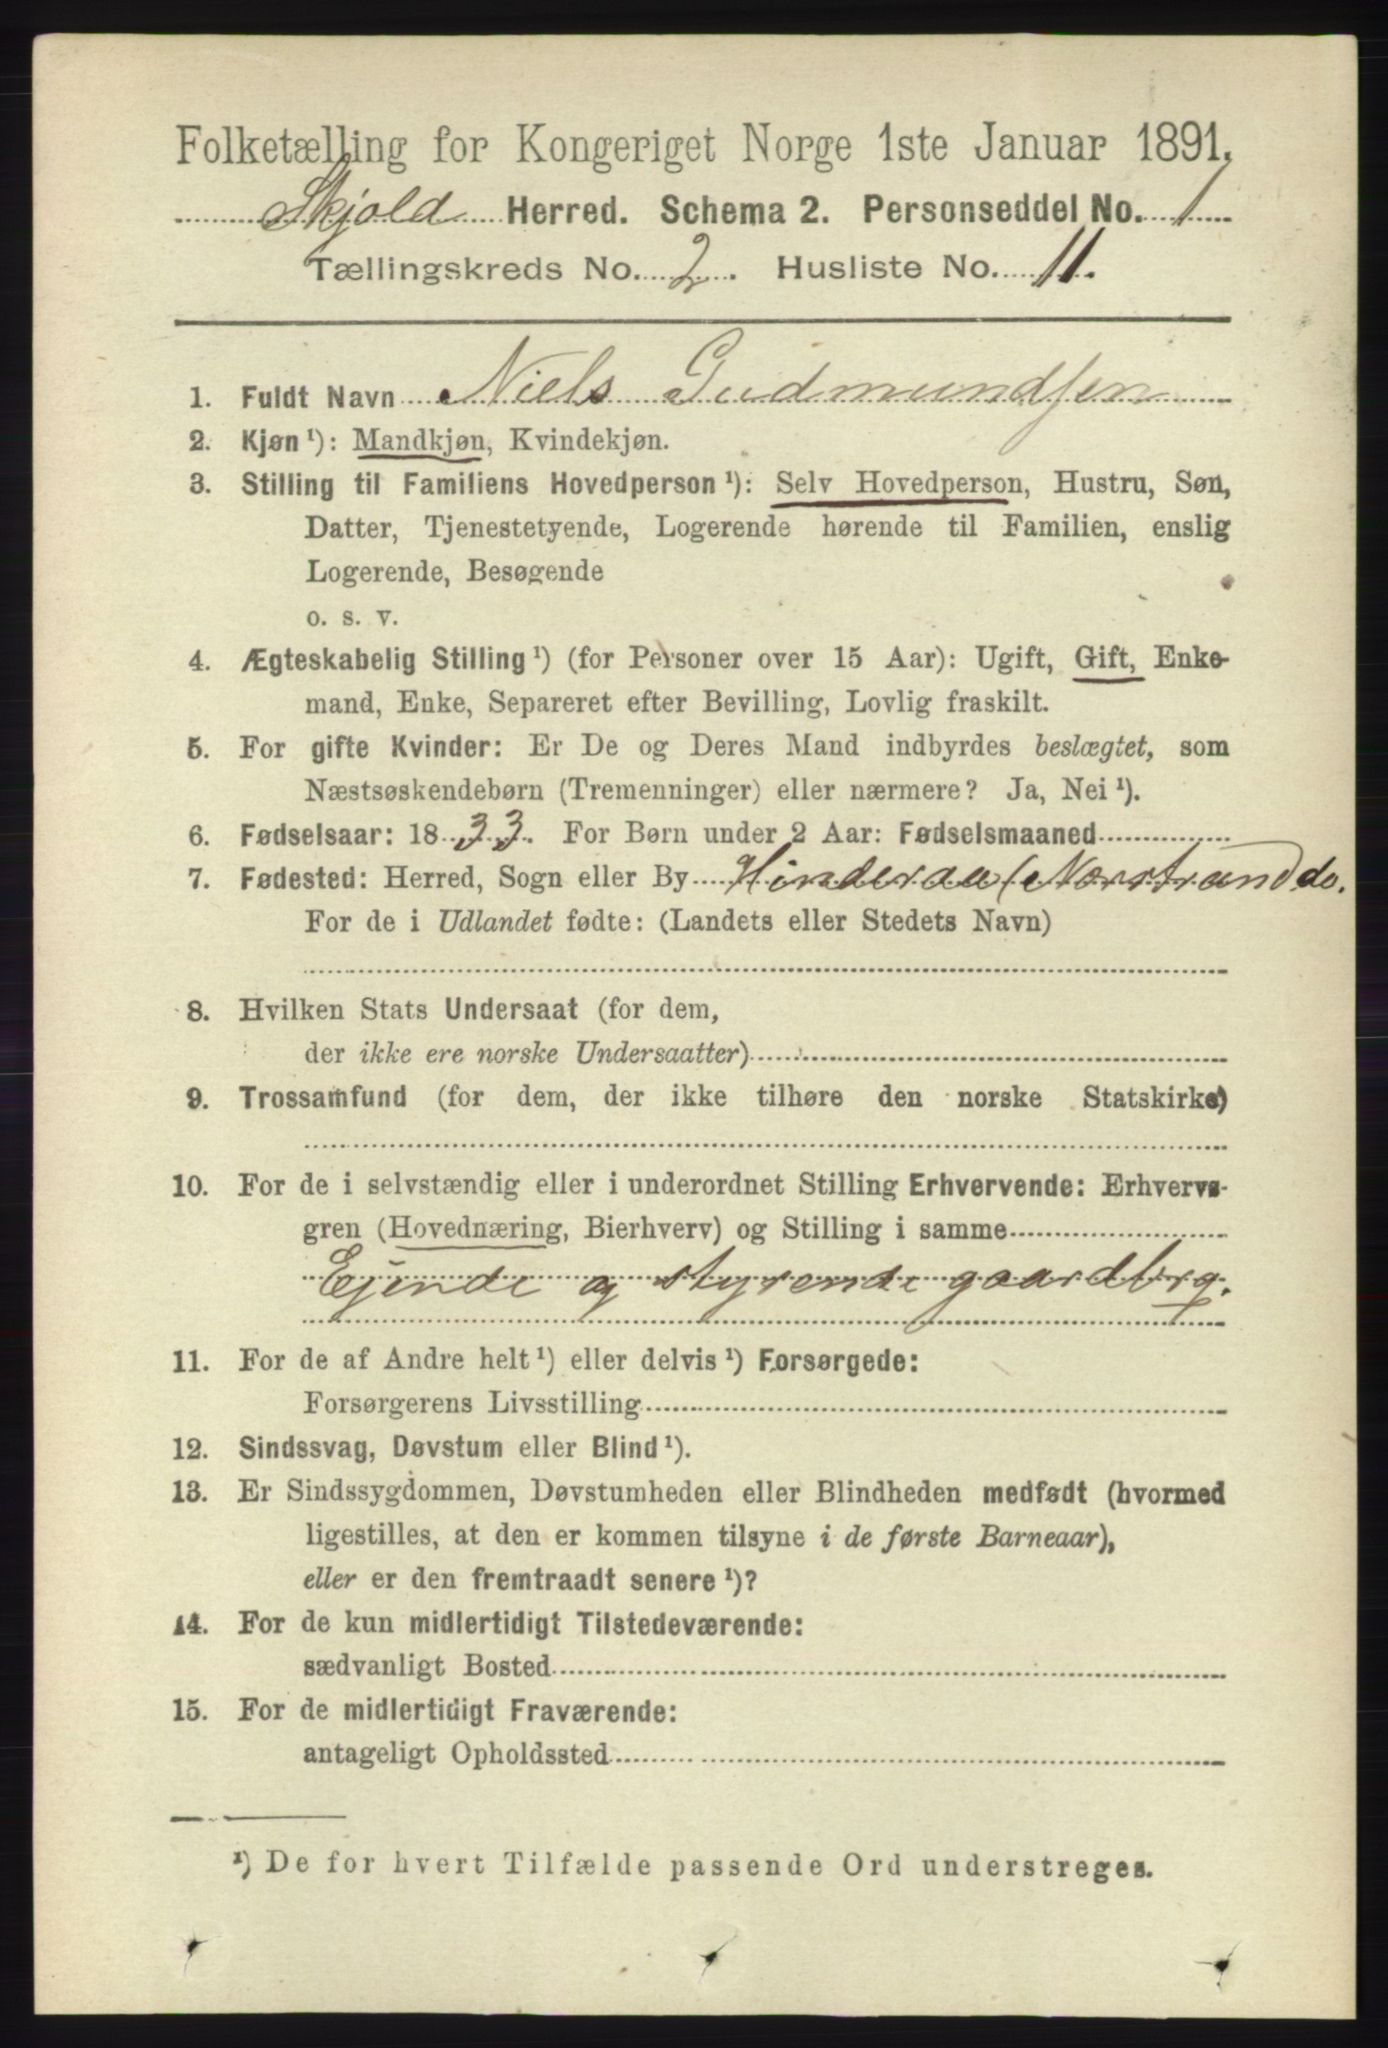 Folketælling for Kongeriget Norge 1ste Januar 1891.
Skjold Herred. Schema 2. Personseddel No. 1
Tællingskreds No. 2. Husliste No. 11.
1. Fuldt Navn Niels Gudmundsen
2. Kjøn ¹): Mandkjøn, Kvindekjøn.
3. Stilling til Familiens Hovedperson ¹): Selv Hovedperson, Hustru, Søn,
Datter, Tjenestetyende, Logerende hørende til Familien, enslig
Logerende, Besøgende
o. s. v.
4. Ægteskabelig Stilling ¹) (for Personer over 15 Aar): Ugift, Gift, Enke-
mand, Enke, Separeret efter Bevilling, Lovlig fraskilt.
5. For gifte Kvinder: Er De og Deres Mand indbyrdes beslægtet, som
Næstsøskendebørn (Tremenninger) eller nærmere? Ja, Nei ¹).
6. Fødselsaar: 1833. For Børn under 2 Aar: Fødselsmaaned
7. Fødested: Herred, Sogn eller By Hinderaa (Nærstrand do.
For de i Udlandet fødte: (Landets eller Stedets Navn)
8. Hvilken Stats Undersaat (for dem,
der ikke ere norske Undersaatter)
9. Trossamfund (for dem, der ikke tilhøre den norske Statskirke)
10. For de i selvstændig eller i underordnet Stilling Erhvervende: Erhvervs-
gren (Hovednæring, Bierhverv) og Stilling i samme
Ejende og styrende gaardbrg.
11. For de af Andre helt ¹) eller delvis ¹) Forsørgede:
Forsørgerens Livsstilling
12. Sindssvag, Døvstum eller Blind ¹).
13. Er Sindssygdommen, Døvstumheden eller Blindheden medfødt (hvormed
ligestilles, at den er kommen tilsyne i de første Barneaar),
eller er den fremtraadt senere ¹)?
14. For de kun midlertidigt Tilstedeværende:
sædvanligt Bosted
15. For de midlertidigt Fraværende:
antageligt Opholdssted
¹) De for hvert Tilfælde passende Ord understreges.